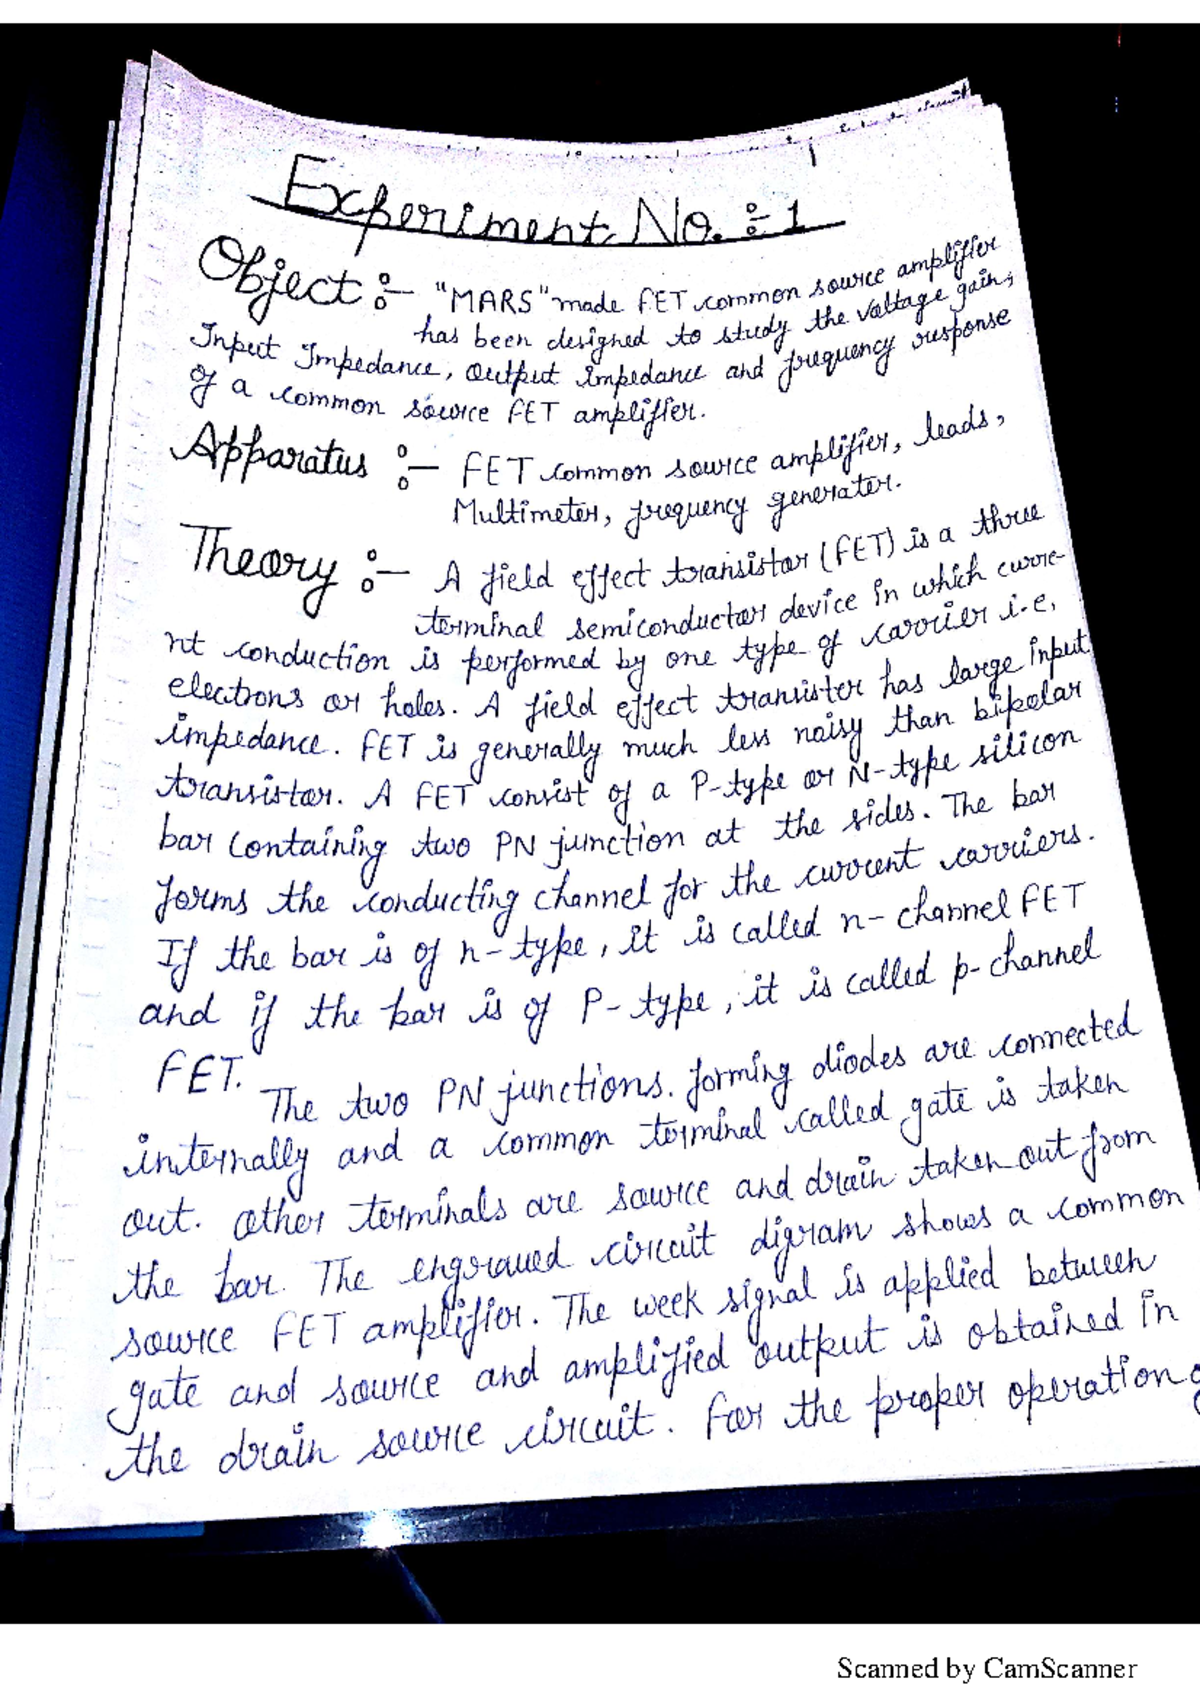 Experiment No. :- 1
Object :- "MARS" made FET common source amplifier
has been designed to study the voltage gain,
Input Impedance, output impedance and frequency response
of a common source FET amplifier.
Apparatus :- FET common source amplifier, leads,
Multimeter, frequency generater.
Theory :- A field effect transistor (FET) is a three
terminal semiconductor device in which curre-
nt conduction is performed by one type of carrier i.e,
electrons or holes. A field effect transister has large input
impedance. FET is generally much less noisy than bipolar
transistor. A FET consist of a P-type or N-type silicon
bar containing two PN junction at the sides. The bar
forms the conducting channel for the current carriers.
If the bar is of n-type, it is called n-channel FET
and if the bar is of P-type, it is called p-channel
FET.
The two PN junctions. forming diodes are connected
internally and a common terminal called gate is taken
out. Other terminals are source and drain taken out from
the bar. The engraved circuit digram shows a common
source FET amplifier. The week signal is applied between
gate and source and amplified output is obtained in
the drain source circuit. For the proper operation
Scanned by CamScanner